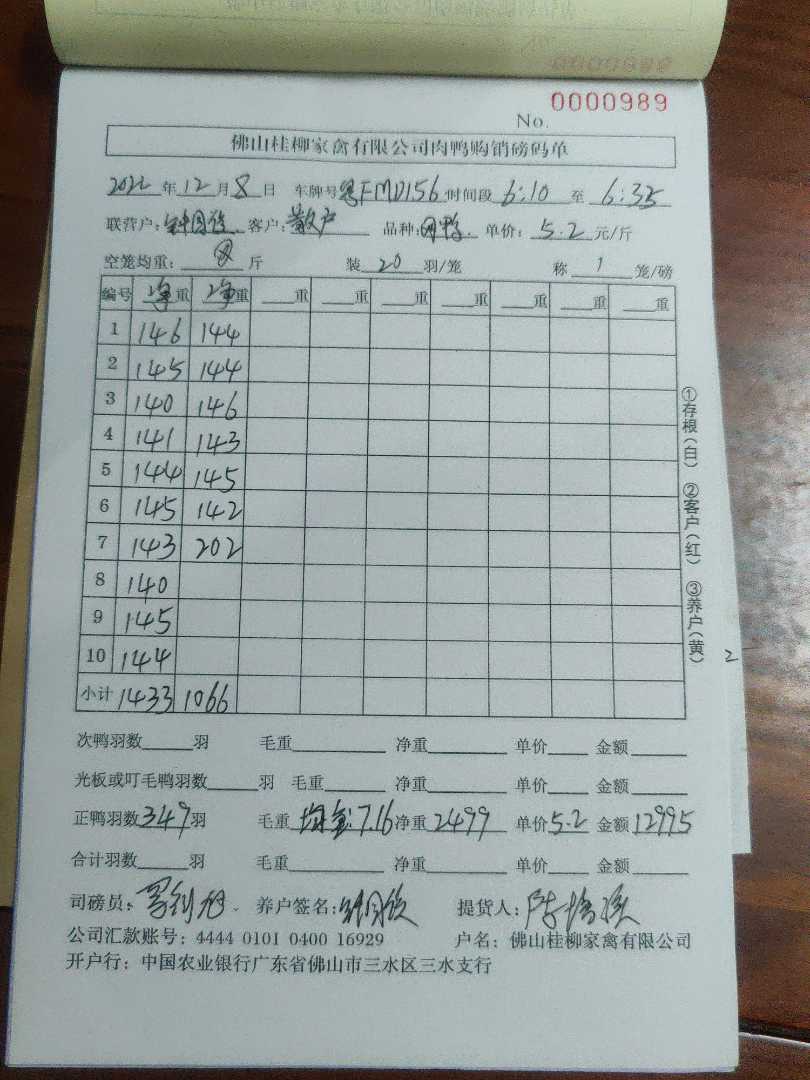 No. 0000989
佛山桂柳家禽有限公司肉鸭购销磅码单
2022年12月8日 车牌号粤FMD156 时间段6:10至6:35
联营户: 客户:散户 品种: 单价:5.2元/斤
空笼均重: 斤 装20羽/笼 称1笼/磅
编号 净重 净重 重 重 重 重 重 重 重
1 146 144
2 145 144
3 140 146
4 141 143
5 144 145
6 145 142
7 143 202
8 140
9 145
10 144
小计 1433 1066
①存根(白) ②客户(红) ③养户(黄)
2
次鸭羽数 羽 毛重 净重 单价 金额
光板或叮毛鸭羽数 羽 毛重 净重 单价 金额
正鸭羽数349羽 毛重 均重:7.16 净重2499 单价5.2 金额12995
合计羽数 羽 毛重 净重 单价 金额
司磅员: 养户签名: 提货人:
公司汇款账号:4444 0101 0400 16929 户名:佛山桂柳家禽有限公司
开户行:中国农业银行广东省佛山市三水区三水支行